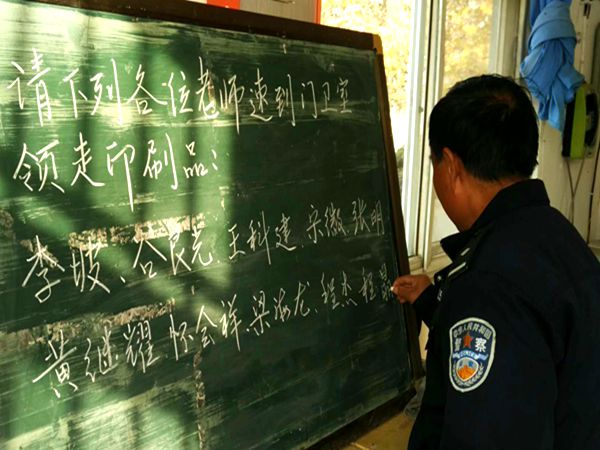 请下列各位老师速到门卫室
领走印刷品:
李波、谷良充、王科建、宋微、张明
黄继耀、怀会祥、梁海龙、程杰、程
中华人民共和国
警察